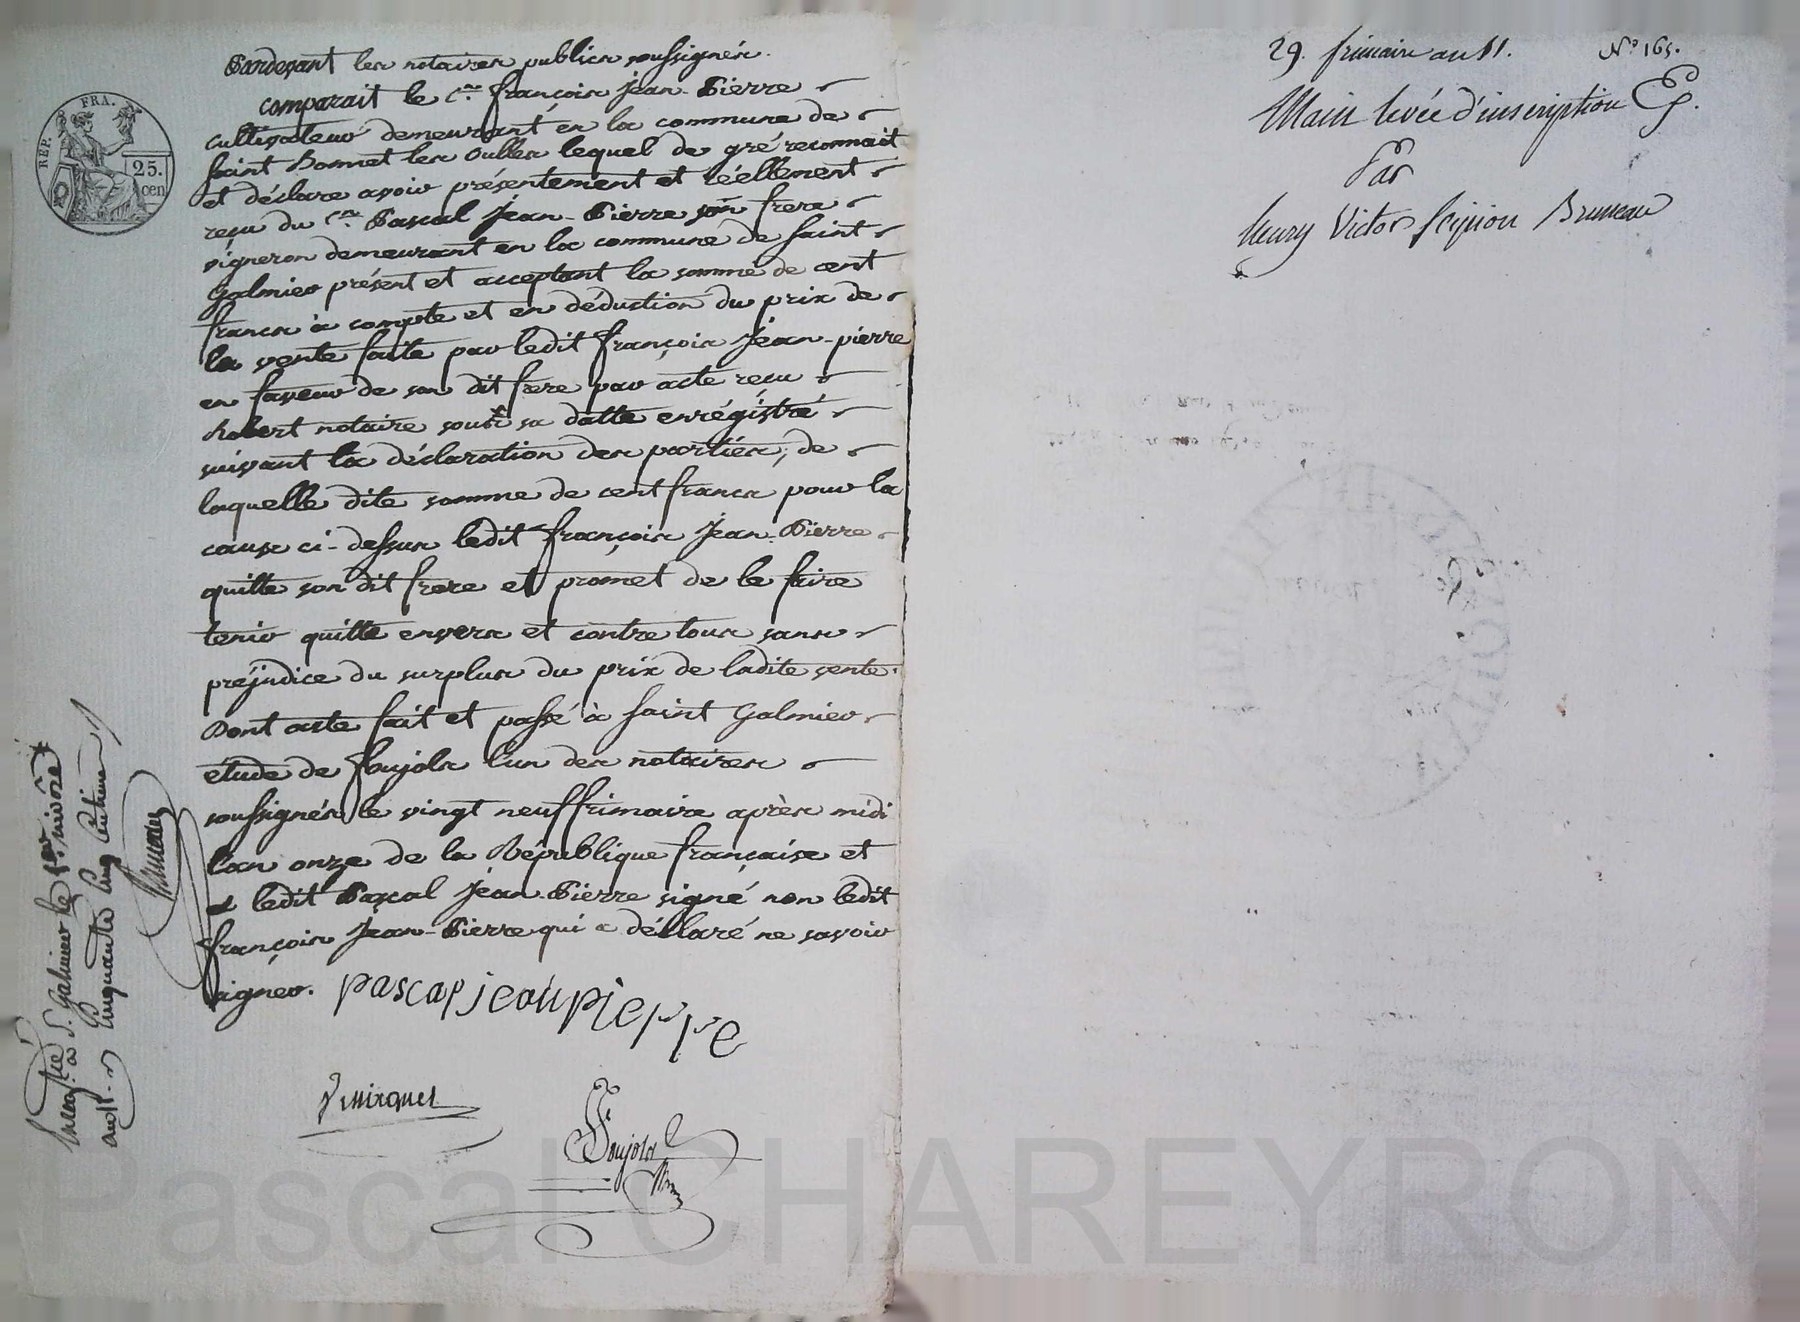 REP. FRA.
25.
cen
Pardevant les notaires publics soussignés.
comparait le c.en françois jean-Pierre
cultivateur demeurant en la commune de
saint Bonnet les Oulles lequel de gré reconnait
et déclare avoir présentement et réellement
reçu du c.en Pascal Jean-Pierre son frere
vigneron demeurant en la commune de saint
Galmier présent et acceptant la somme de cent
francs à compte et en déduction du prix de
la vente faite par ledit françois Jean-pierre
en faveur de son dit frere par acte reçu
Robert notaire sous sa datte enrégistré
suivant la déclaration des parties, de
laquelle dite somme de cent francs pour la
cause ci-dessus ledit françois Jean-Pierre
quitte son dit frere et promet de le faire
tenir quitte envers et contre tous sans
préjudice du surplus du prix de ladite vente.
Dont acte fait et passé à saint Galmier
étude de foujols l'un des notaires
soussignés le vingt neuf frimaire après midi
l'an onze de la République française et
a ledit Pascal Jean-Pierre signé non ledit
françois Jean-Pierre qui a déclaré ne savoir
signer. pascal jean pierre
foujols
Enreg.tré à S. Galmier le 1er nivose
an 11 cinquante cinq centimes
Bruneau
29. frimaire an 11. N.o 165.
Main levée d'inscription
Par
henry Victor scipion Bruneau
Pascal CHAREYRON